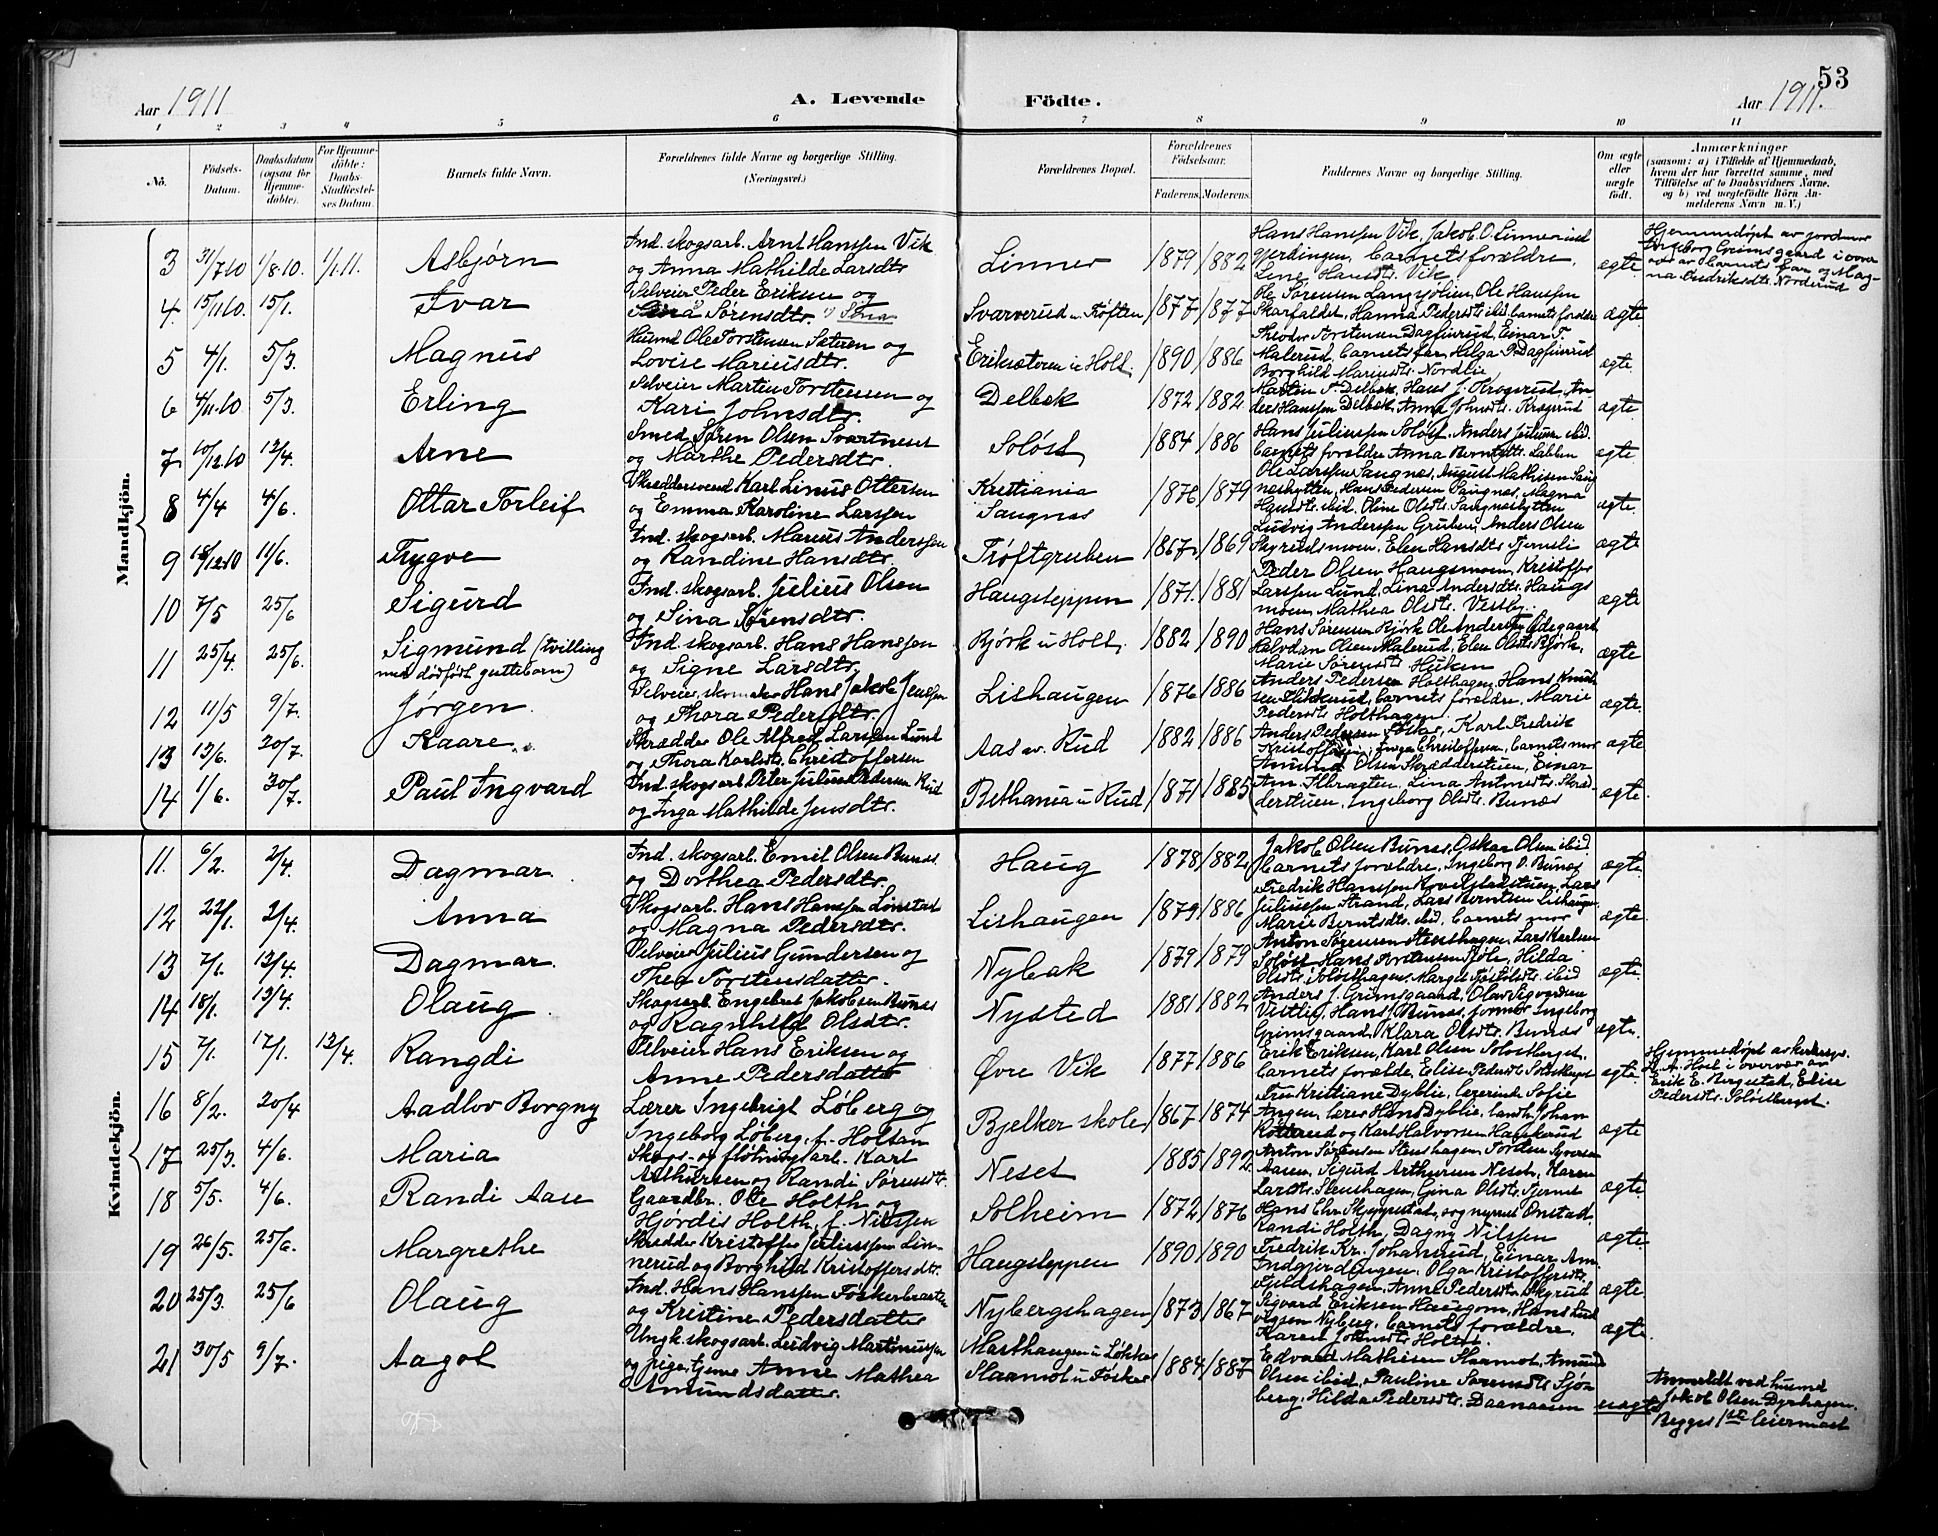 53
Aar 1911
A. Levende Födte.
Aar 1911.
1 2 3 4 5 6 7 8 9 10 11
No.
Födsels-Datum.
Daabsdatum (ogsaa for Hjemme-döbte).
For Hjemme-döbte: Daabs-Stadfæstel-ses Datum.
Barnets fulde Navn.
Forældrenes fulde Navne og borgerlige Stilling.
(Næringsvei.)
Forældrenes Bopæl.
Forældrenes Födselsaar.
Faderens. Moderens.
Faddernes Navne og borgerlige Stilling.
Om ægte eller uægte födt.
Anmærkninger
(saasom: a) i Tilfælde af Hjemmedaab, hvem der har forrettet samme, med Tilföielse af to Daabsvidners Navne, og b) ved uægtefödte Börn Anmelderens Navn m. V.)
Mandkjön.
3 31/7.10 1/8.10. 1/1.11. Asbjørn
Ind. skogsarb. Arnt Hanssen Vik
og Anna Mathilde Larsdtr
Linner 1879 1882
Hans Hanssen Vik, Jakob O. Linnerud
Gjerdingen, barnets forældre,
Line Hansdtr. Vik
ægte
Hjemmedøpt av jordmor
Ingeborg Grimsgaard i over
vær av barnets far og Mag-
na Fredriksdtr. Norderud
4. 15/11.10. 15/1. Ivar
Selveier Peder Eriksen og
Sørensdtr. Sina
Svarverud u. Trøften 1877 1877
Ole Sørensen Langsjølien, Ole Hanssen
Skarfaldet, Hanna Pedersdtr ibid. barnets forældre
ægte
5 4/1. 5/3. Magnus
Husmd Ole Torstensen Sæteren og
Lovise Mariusdtr.
Eriksæteren u Holt. 1890 1886
Theodor Torstensen Dagfinrud, Einar T.
Malerud, barnets far, Helga P. Dagfinrud
Borghild Mariusdtr. Nordlie
ægte
6 4/11.10 5/3. Erling
Selveier Martin Torstensen og
Kari Johnsdtr.
Delbek 1872 1882
Martin T. Delbæk, Hans J. Krogerud, An-
ders Hanssen Delbæk, Anna Johnsdtr. Krogerud
ægte
7 10/12.10 12/4. Arne
Smed Søren Olsen Svartneset
og Marthe Pedersdtr.
Soløst 1884 1886
Hans Juliussen Soløst, Anders Julius. ibid.
barnets forældre Anna Berntsdtr. Labben
ægte
8 4/4 4/6. Ottar Torleif
Skræddersvend Karl Linus Ottersen
og Emma Karoline Larssen
Kristiania
Saugnæs 1876 1879
Ole Larssen Saugnæs, August Mathisen Saug
næshytten, Hans Pedersen Saugnæs, Magna
Hansdtr. ibid. Oline Olsdtr. Saugnæshytten
ægte
9 18/12.10 11/6. Trygve
Ind. skogsarb. Marius Anderssen
og Randine Hansdtr.
Trøftgruben 1867 1869
Ludvig Anderssen Gruben, Anders Olsen
Skyrudsmoen, Elen Hansdtr Tjernsli
ægte
10 7/5 25/6 Sigurd
Ind. skogsarb. Julius Olsen
og Sina Sørensdtr.
Haugsteppen 1871 1881
Peder Olsen Haugsmoen, Kristoffer
Larssen Lund, Lina Andersdtr. Haugs
moen, Mathea Olsdtr. Vestby.
ægte
11 25/4. 25/6. Sigmund (tvilling
med dødfødt guttebarn)
Ind. skogsarb. Hans Hanssen
og Signe Larsdtr.
Bjørk u Holt 1882 1890
Hans Sørensen Bjørk Ole Anders. Ødegaard
Halvdan Olsen Malerud, Elen Olsdtr. Bjørk,
Marie Sørensdtr. Huken
ægte
12 11/5 9/7. Jørgen
Selveier, skomaker Hans Jakob Jenssen
og Thora Pedersdtr.
Lishaugen 1876 1886
Anders Pedersen Holthagen, Hans Knud-
sen, barnets forældre, Marie
Pedersdtr. Holthagen
ægte
13 13/6. 20/7. Kaare
Skrædder Ole Alfred Larssen Lund
og Thora Karlsdtr. Christoffersen
Aas u. Rud 1882 1886
Anders Pedersen, Karl Fredrik
Kristoffersen, Inga Christoffersen, barnets mor
ægte
14 1/6. 30/7. Paul Ingvard
Ind. skogsarb. Peter Julius Pedersen Rud
og Inga Mathilde Jensdtr.
Bethania u Rud 1871 1885
Amund Olsen Skrædderstuen, Einar
Am. Ilbragten, Lina Antonsdtr. Skræd-
derstuen, Ingeborg Olsdtr. Bunæs
ægte
Kvindekjön.
11. 6/2. 2/4. Dagmar
Ind. skogsarb. Emil Olsen Bunæs.
og Dorthea Pedersdtr.
Haug 1878 1882
Jakob Olsen Bunæs, Oskar Olsen ibid
barnets forældre, Ingeborg O. Bunæs
ægte
12 22/1. 2/4. Anna
Skogsarb. Hans Hanssen Lønstad
og Magna Pedersdtr.
Lishaugen 1879 1886
Fredrik Hanssen, Lars
Juliussen Strand, Lars Berntsen Lishaugen
Marie Berntsdtr. ibid, barnets mor
ægte
13 7/1. 13/4. Dagmar
Selveier Julius Gundersen og
Thea Torstensdatter
Nybak 1879 1879
Anton Sørensen Stenshagen, Lars Karlsen
Soløst Hans Torstensen, Hilda
Olsdtr. Soløsthagen, ibid
ægte
14 18/1. 13/4. Olaug
Skogsarb. Engebret Jakobsen Bunæs
og Ragnhild Olsdtr.
Nysted 1881 1882
Anders J. Grimsgaard, Olav Sigvardsen
Vestlie, Hans J. Bunæs, jordmor Ingeborg
Grimsgaard, Klara Olsdtr. Bunæs
ægte
15 7/1. 17/1. 13/4. Rangdi
Selveier Hans Eriksen og
Anne Pedersdatter
Øvre Vik 1877 1886
Erik Eriksen, Karl Olsen Soløstberget,
barnets forælde, Elise Pedersdtr Soløstberget
ægte
Hjemmedøpt av
A. Hoel i overvær av
Erik E. Bergestad, Elise
Pedersdtr. Soløstberget.
16 8/2. 20/4 Aadlov Borgny
Lærer Ingebrigt Løberg og
Ingeborg Løberg, f. Holtan
Bjelker skole 1867 1874
Fru Kristiane Dyblie, Lærerinde Sofie
Angen, lærer Hans Dyblie, landh. Johan
og Karl Halvorsen Haverud
ægte
17 25/3. 4/6. Maria
Skogs- og fløtningsarb. Karl
Arthursen og Randi Sørensdtr.
Neset 1885 1892
Anton Sørensen Stenshagen, Torsten Syversen
Aasen, Sigurd Arthursen Neset, Karen
Larsdtr. Stenshagen, Gina Olsdtr.
ægte
18 5/5. 4/6. Randi Aase
Gaardbr. Ole Holth og
Hjørdis Holth, f. Nilssen
Solheim 1872 1876
Hans Chr. Skjeppestad, sogneprest Onstad,
Randi Holth, Dagny Nilssen
ægte
19 26/5. 25/6. Margrethe
Skrædder Kristoffer Juliussen Lin-
nerud og Borghild Kristoffersdtr.
Haugsteppen 1890 1890
Fredrik Kr. Johnsrud, Einar Am.
Indgjerdingen, Olga Kristoffersdtr.
Fjeldshagen, Anne Pedersdtr. Skyrud
ægte
20 25/3. 25/6 Olaug
Ind. Hans Hanssen Foskerbraaten
og Kristine Pedersdatter
Nybergshagen 1873 1867
Sigvard Eriksen Haugom, Hans Lud
vigsen Nyberg, barnets forældre,
Karen Johnsdtr. Holtet.
ægte
21 30/5 9/7. Aagot
Ungk. skogsarb. Ludvig Martinussen
og pige, tjener Anne Mathea
Amundsdatter
Marthaugen u. Løkken
Slaamot u Fosker 1884 1887
Edvard Mathisen Slaamot, Amund
Olsen ibid, Pauline Sørensdtr. Sjø-
berg, Hilda Pedersdtr. Daanaasen
uægte
Anmeldt ved husmd
Jakob Olsen Dyrhagen.
Begges 1ste leiermaal